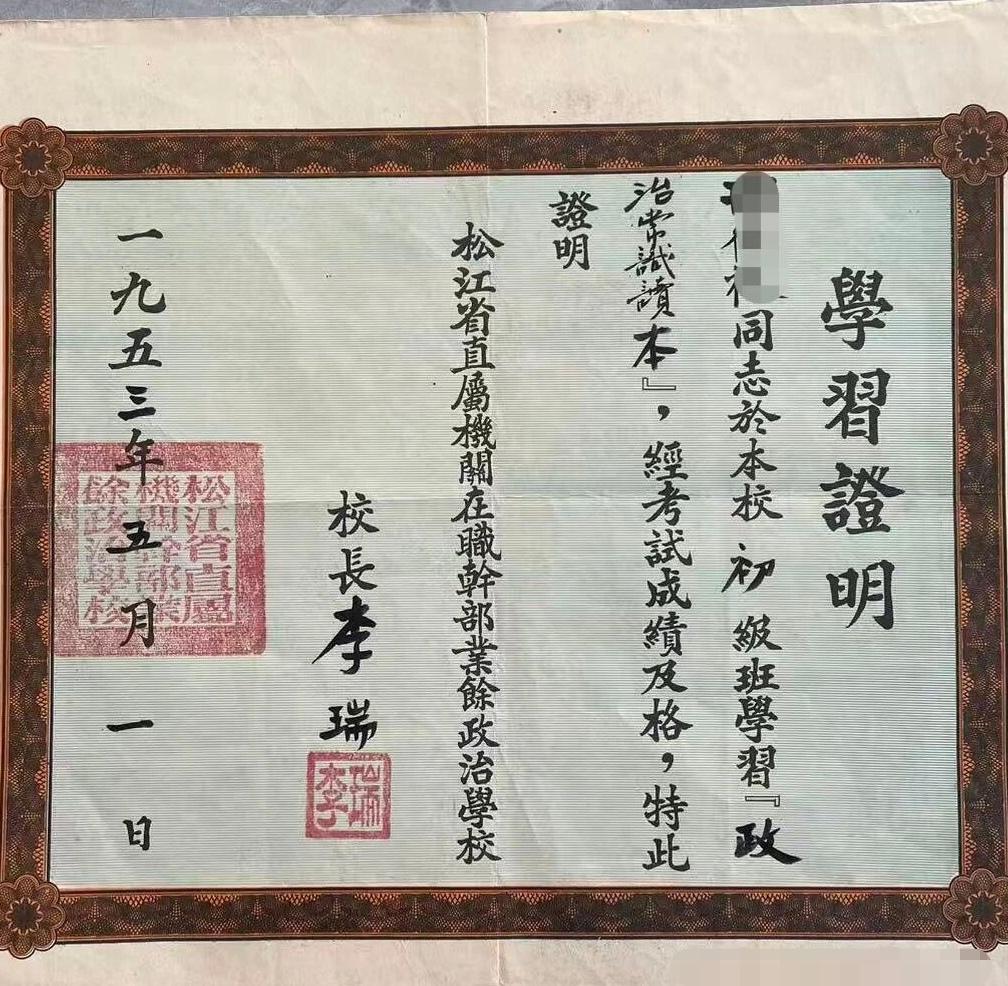 學習證明
同志於本校初級班學習『政
治常識讀本』，經考試成績及格，特此
證明
松江省直屬機關在職幹部業餘政治學校
校長李瑞
李瑞
一九五三年五月一日
松江省直屬
機關幹部業
餘政治學校